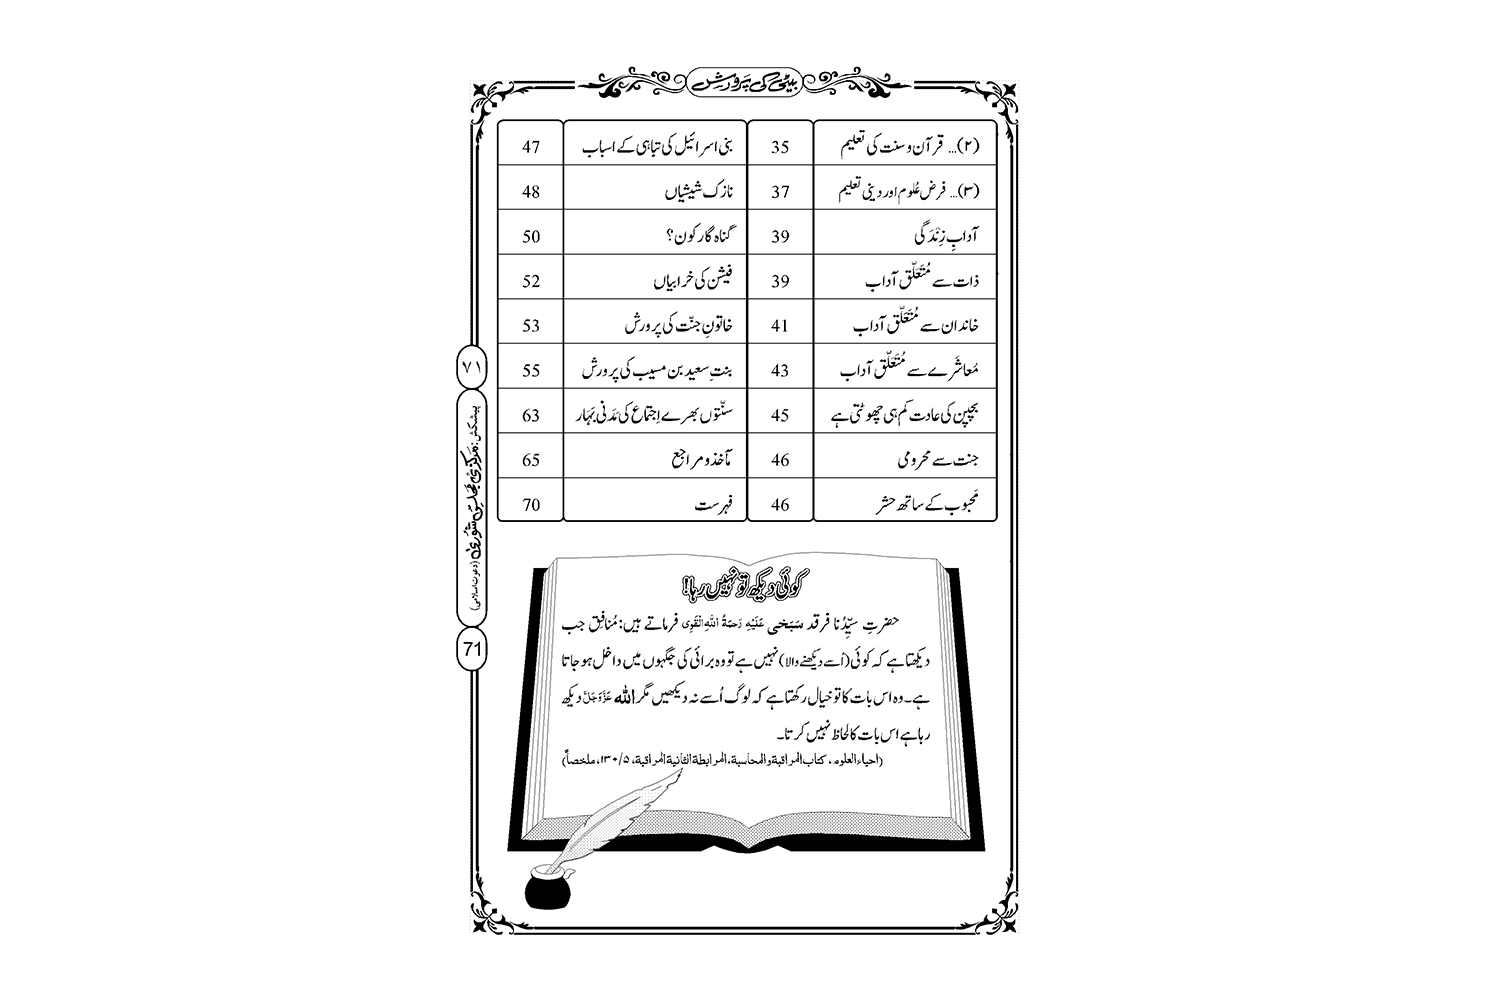 بیٹی کی پرورش
(۲)... قرآن و سنت کی تعلیم 35 بنی اسرائیل کی تباہی کے اسباب 47
(۳)... فرض عُلوم اور دینی تعلیم 37 نازک شیشیاں 48
آدابِ زِنْدَگی 39 گناہ گار کون؟ 50
ذات سے مُتَعَلّق آداب 39 فیشن کی خرابیاں 52
خاندان سے مُتَعَلّق آداب 41 خاتونِ جنّت کی پرورش 53
مُعاشَرے سے مُتَعَلّق آداب 43 بنتِ سعید بن مسیب کی پرورش 55
بچپن کی عادت کم ہی چھوٹتی ہے 45 سنّتوں بھرے اِجتماع کی مَدَنی بَہَار 63
جنت سے محرومی 46 مآخذ و مراجع 65
مَحبوب کے ساتھ حشر 46 فہرست 70
کوئی دیکھ تو نہیں رہا!
حضرتِ سیِّدُنا فرقد سَبَخی عَلَیْہِ رَحمَۃُ اللہِ الْقَوِی فرماتے ہیں: مُنافِق جب
دیکھتا ہے کہ کوئی (اُسے دیکھنے والا) نہیں ہے تو وہ برائی کی جگہوں میں داخل ہو جاتا
ہے۔ وہ اس بات کا تو خیال رکھتا ہے کہ لوگ اُسے نہ دیکھیں مگر اللہ عَزَّوَجَلَّ دیکھ
رہا ہے اس بات کا لحاظ نہیں کرتا۔
(احیاء العلوم، کتاب المراقبۃ والمحاسبۃ، المرابطۃ الثانیۃ المراقبۃ، ۵/۱۳۰، ملخصاً)
۷۱
پیشکش: مرکزی مجلسِ شوریٰ (دعوتِ اسلامی)
71